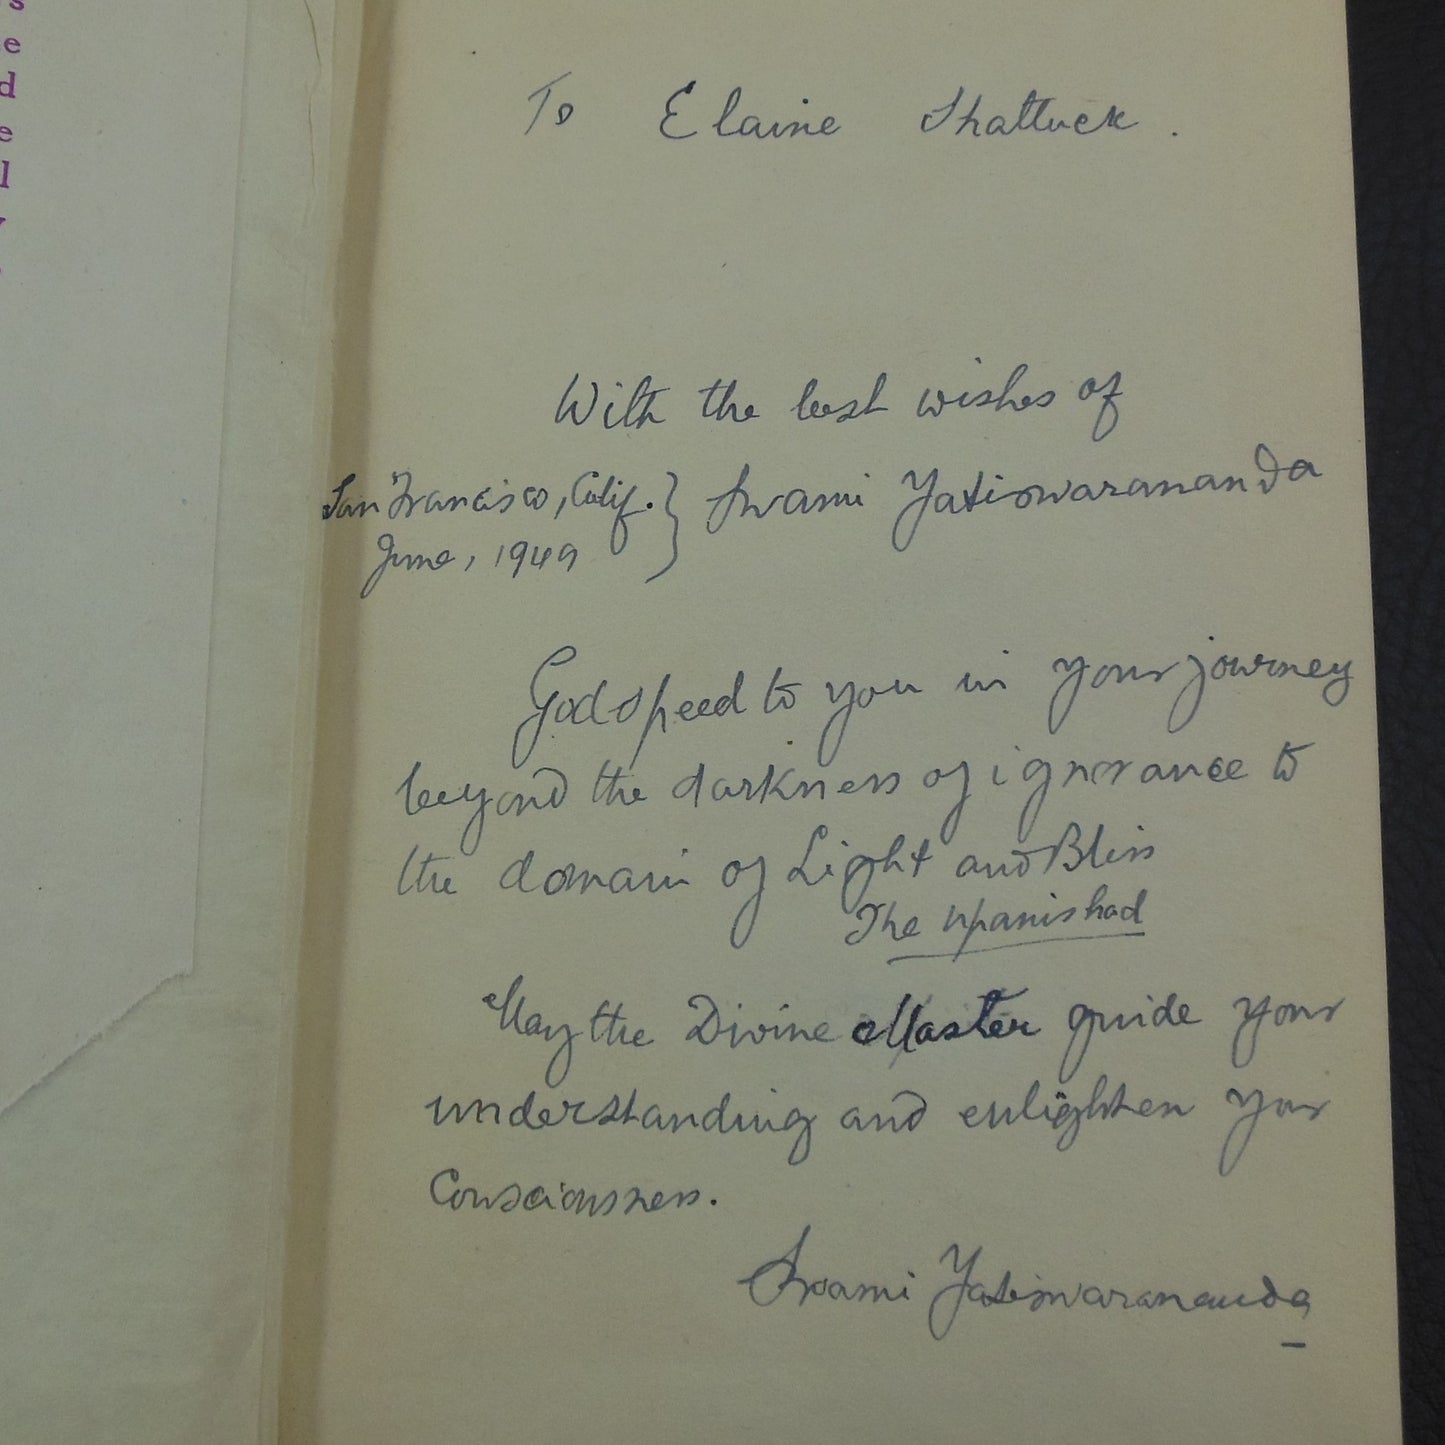 s
e
d
e
l
To Elaine Shattuck.
With the best wishes of
San Francisco, Calif. } Swami Yatiswarananda
June, 1949
Godspeed to you in your journey
beyond the darkness of ignorance to
the domain of Light and Bliss
The Upanishad
May the Divine Master guide your
understanding and enlighten your
Consciousness.
Swami Yatiswarananda